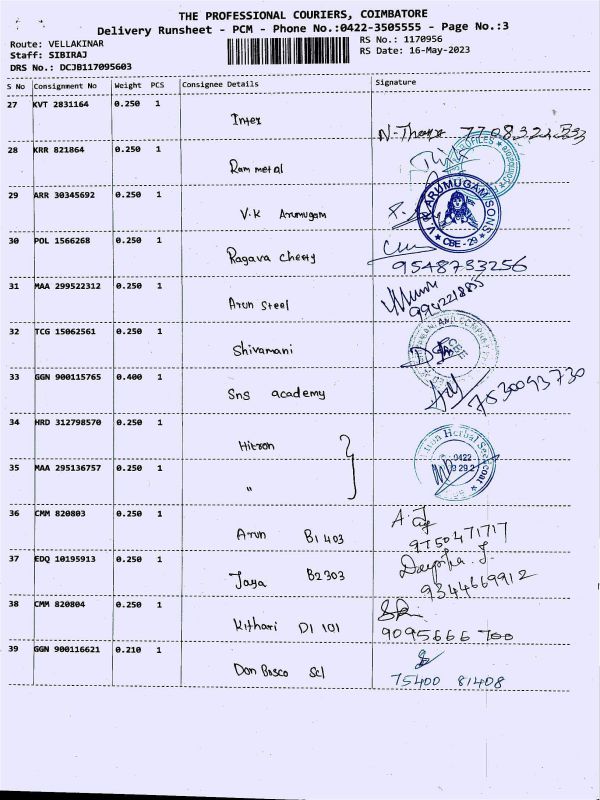 THE PROFESSIONAL COURIERS, COIMBATORE
Delivery Runsheet - PCM - Phone No.:0422-3505555 - Page No.:3
Route: VELLAKINAR RS No.: 1170956
Staff: SIBIRAJ RS Date: 16-May-2023
DRS No.: DCJB117095603
S No Consignment No Weight PCS Consignee Details Signature
27 KVT 2831164 0.250 1
Intex
28 KRR 821864 0.250 1
Ram metal
29 ARR 30345692 0.250 1
V.K Arumugam
V.K ARUMUGAM SONS
CBE - 29
30 POL 1566268 0.250 1
Ragava Chetty
9548733256
31 MAA 299522312 0.250 1
Arun Steel
32 TCG 15062561 0.250 1
Shivamani
33 GGN 900115765 0.400 1
Sns academy
7530093730
34 HRD 312798570 0.250 1
Hitron
Herbal
0422
35 MAA 295136757 0.250 1
"
36 CMM 820803 0.250 1
Arun B1403
9750471717
37 EDQ 10195913 0.250 1
Jaya B2303
9344669912
38 CMM 820804 0.250 1
Kithari D1 101
9095666 700
39 GGN 900116621 0.210 1
Don Bosco Scl
75400 81408